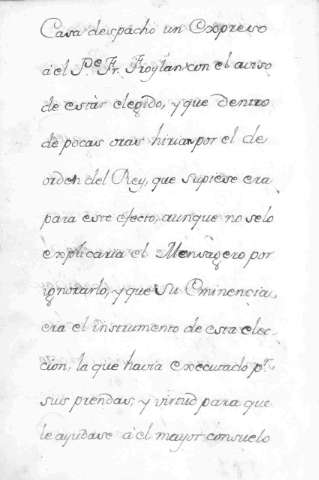 Casa despachò un Expreso
á el Pe. Fr. Froylan con el aviso
de estàr elegido, y que dentro
de pocas oras hirian por el de
orden del Rey, que supiese era
para este efecto, aunque no selo
explicaria el Mensagero por
ignorarlo, y que Su Eminencia
era el instrumento de esta elec-
cion, la que havia executado pr.
sus prendas, y virtud para que
le ayudase á el mayor consuelo